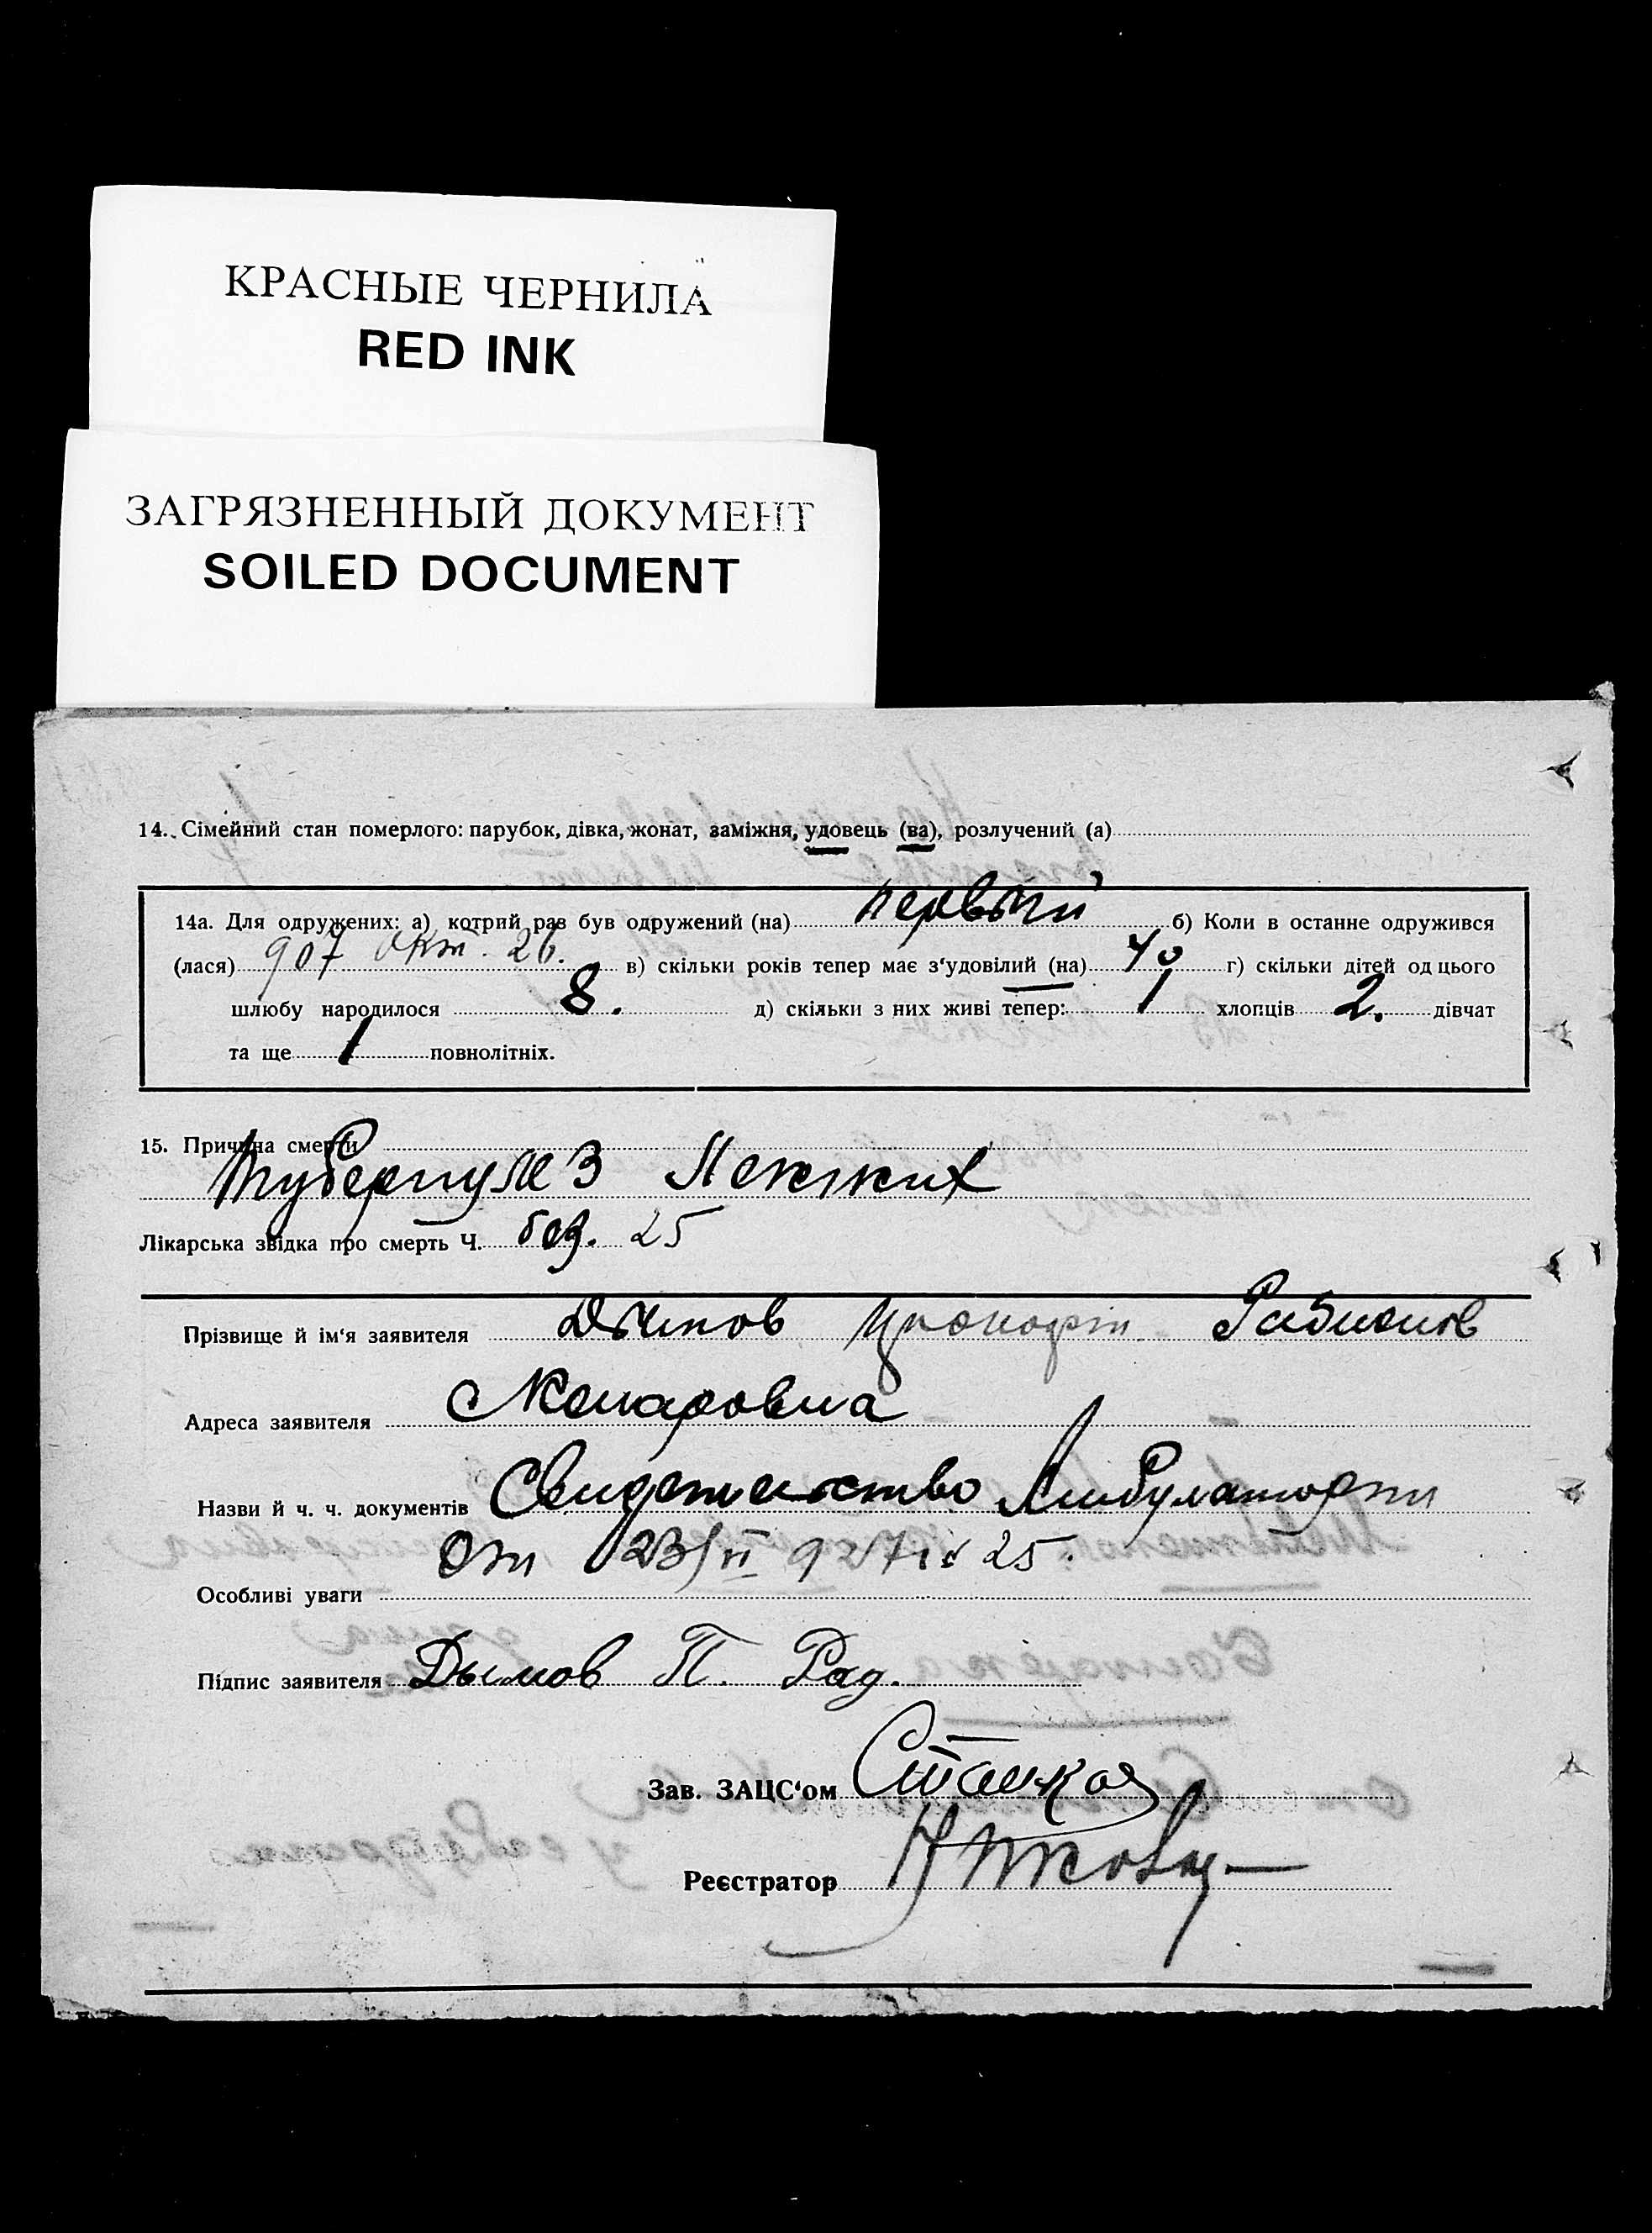 КРАСНЫЕ ЧЕРНИЛА
RED INK
ЗАГРЯЗНЕННЫЙ ДОКУМЕНТ
SOILED DOCUMENT
14. Сімейний стан померлого: парубок, дівка, жонат, заміжня, удовець (ва), розлучений (а)
14а. Для одружених: а) котрий раз був одружений (на) первый б) Коли в останне одружився
(лася) 907 окт. 26. в) скільки років тепер має з'удовілий (на) 40 г) скільки дітей од цього
шлюбу народилося 8. д) скільки з них живі тепер: 1 хлопців 2. дівчат
та ще 1 повнолітніх.
15. Причина смерти
Туберкулез Легких
Лікарська звідка про смерть Ч. без. 25
Прізвище й ім'я заявителя Дымов
Адреса заявителя
Назви й ч. ч. документів Свидетельство Амбулатории
От 23/II 927 25.
Особливі уваги
Підпис заявителя Дымов П. Рад.
Зав. ЗАЦС'ом
Реєстратор